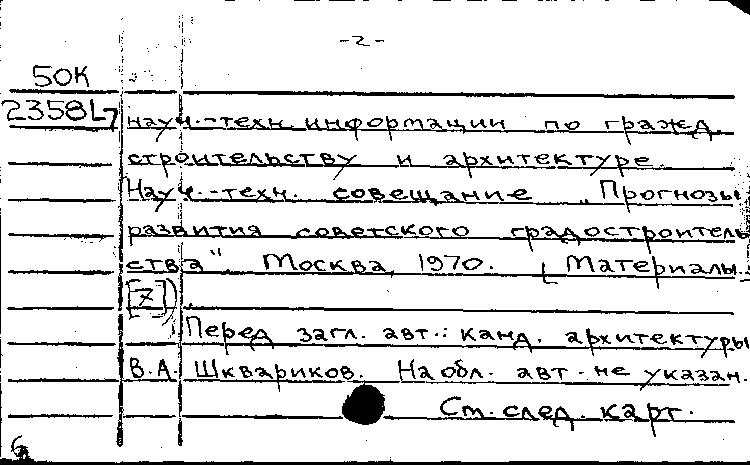 -2-
50К
2358L7
науч.-техн информации по гражд.
строительству и архитектуре.
Науч.-техн. совещание „Прогнозы
развития советского градостроитель
ства". Москва, 1970. [Материалы..
[7]).
Перед загл. авт.: канд. архитектуры
В.А. Шквариков. На обл. авт. не указан.
См. след. карт.